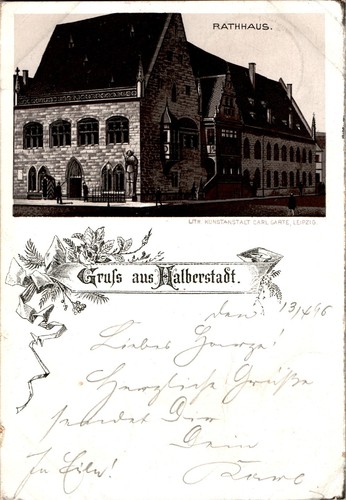 RATHHAUS.
LITH. KUNSTANSTALT CARL GARTE, LEIPZIG.
Gruss aus Halberstadt.
den 13/4 96
Liebes
Herzliche Grüße
sendet Dir
Dein
In Eile! Karl